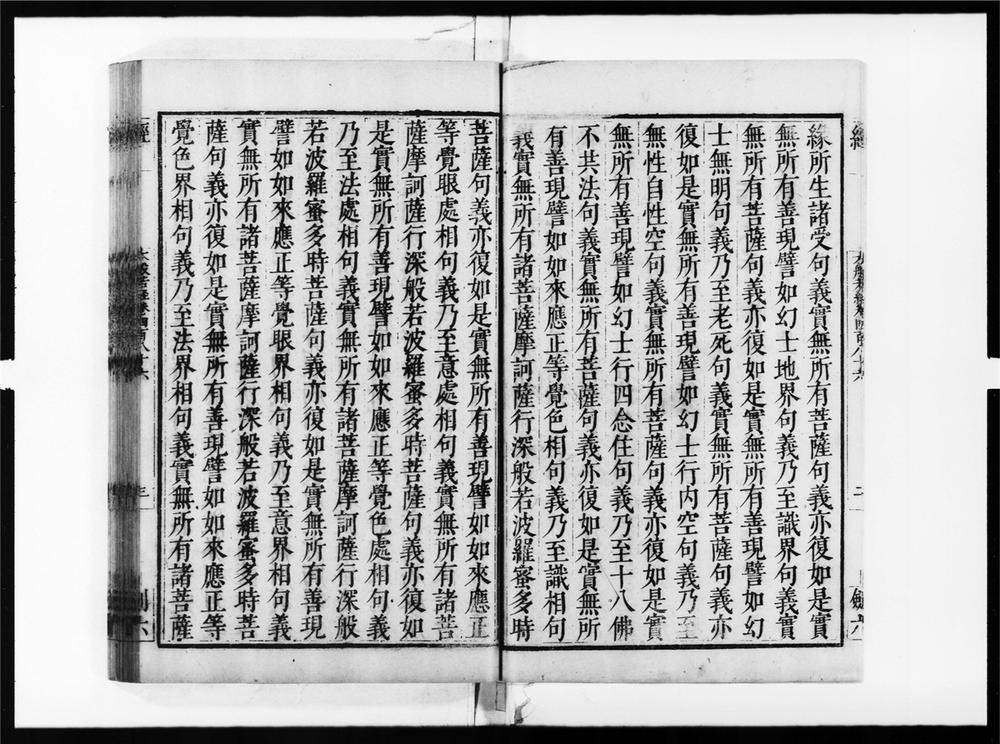 經
大般若經卷四百八十六
二
劍六
緣所生諸受句義實無所有菩薩句義亦復如是實
無所有善現譬如幻士地界句義乃至識界句義實
無所有菩薩句義亦復如是實無所有善現譬如幻
士無明句義乃至老死句義實無所有菩薩句義亦
復如是實無所有善現譬如幻士行內空句義乃至
無性自性空句義實無所有菩薩句義亦復如是實
無所有善現譬如幻士行四念住句義乃至十八佛
不共法句義實無所有菩薩句義亦復如是實無所
有善現譬如如來應正等覺色相句義乃至識相句
義實無所有諸菩薩摩訶薩行深般若波羅蜜多時
菩薩句義亦復如是實無所有善現譬如如來應正
等覺眼處相句義乃至意處相句義實無所有諸菩
薩摩訶薩行深般若波羅蜜多時菩薩句義亦復如
是實無所有善現譬如如來應正等覺色處相句義
乃至法處相句義實無所有諸菩薩摩訶薩行深般
若波羅蜜多時菩薩句義亦復如是實無所有善現
譬如如來應正等覺眼界相句義乃至意界相句義
實無所有諸菩薩摩訶薩行深般若波羅蜜多時菩
薩句義亦復如是實無所有善現譬如如來應正等
覺色界相句義乃至法界相句義實無所有諸菩薩
經
大般若經卷四百八十六
三
劍六